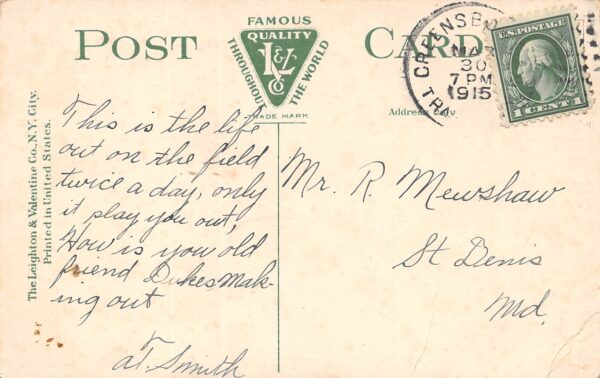 The Leighton & Valentine Co., N.Y. City.
Printed in United States.
POST CARD
FAMOUS
QUALITY
THROUGHOUT
THE WORLD
L&V
Co
TRADE MARK
Address only.
GREENSBU
MAR
30
7 PM
1915
U.S. POSTAGE
1 CENT 1
This is the life
out on the field
twice a day, only
it play you out,
How is you old
friend Dukes Mak-
ing out
Smith
Mr. R. Mewshaw
St Denis
Md.